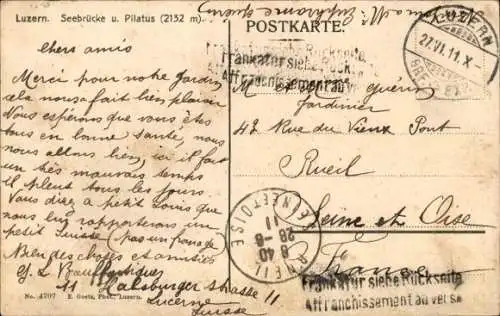 Luzern. Seebrücke u. Pilatus (2132 m).
POSTKARTE.
LUZERN
27.VI.11.X-
BRIEF
Frankatur siehe Rückseite
Affranchissement au verso
Chers amis
Merci pour notre jardin
cela nous fait bien plaisir
Nous espérons que vous êtes
tous en bonne santé, nous
nous allons bien, ici il fait
un très mauvais temps
il pleut tous les jours.
Vous direz a petit Louis que
nous lui rapporterons un
petit Suisse (pas un fromage)
Bien des choses et amitiés
11 Halsburger strasse 11
Lucerne
Suisse
Guérin
Jardinier
42 Rue du Vieux Pont
Rueil
Seine et Oise
France
RUEIL
SEINE ET OISE
8 40
28 - 6
11
Frankatur siehe Rückseite
Affranchissement au verso
No. 4207 E. Goetz, Phot., Luzern.